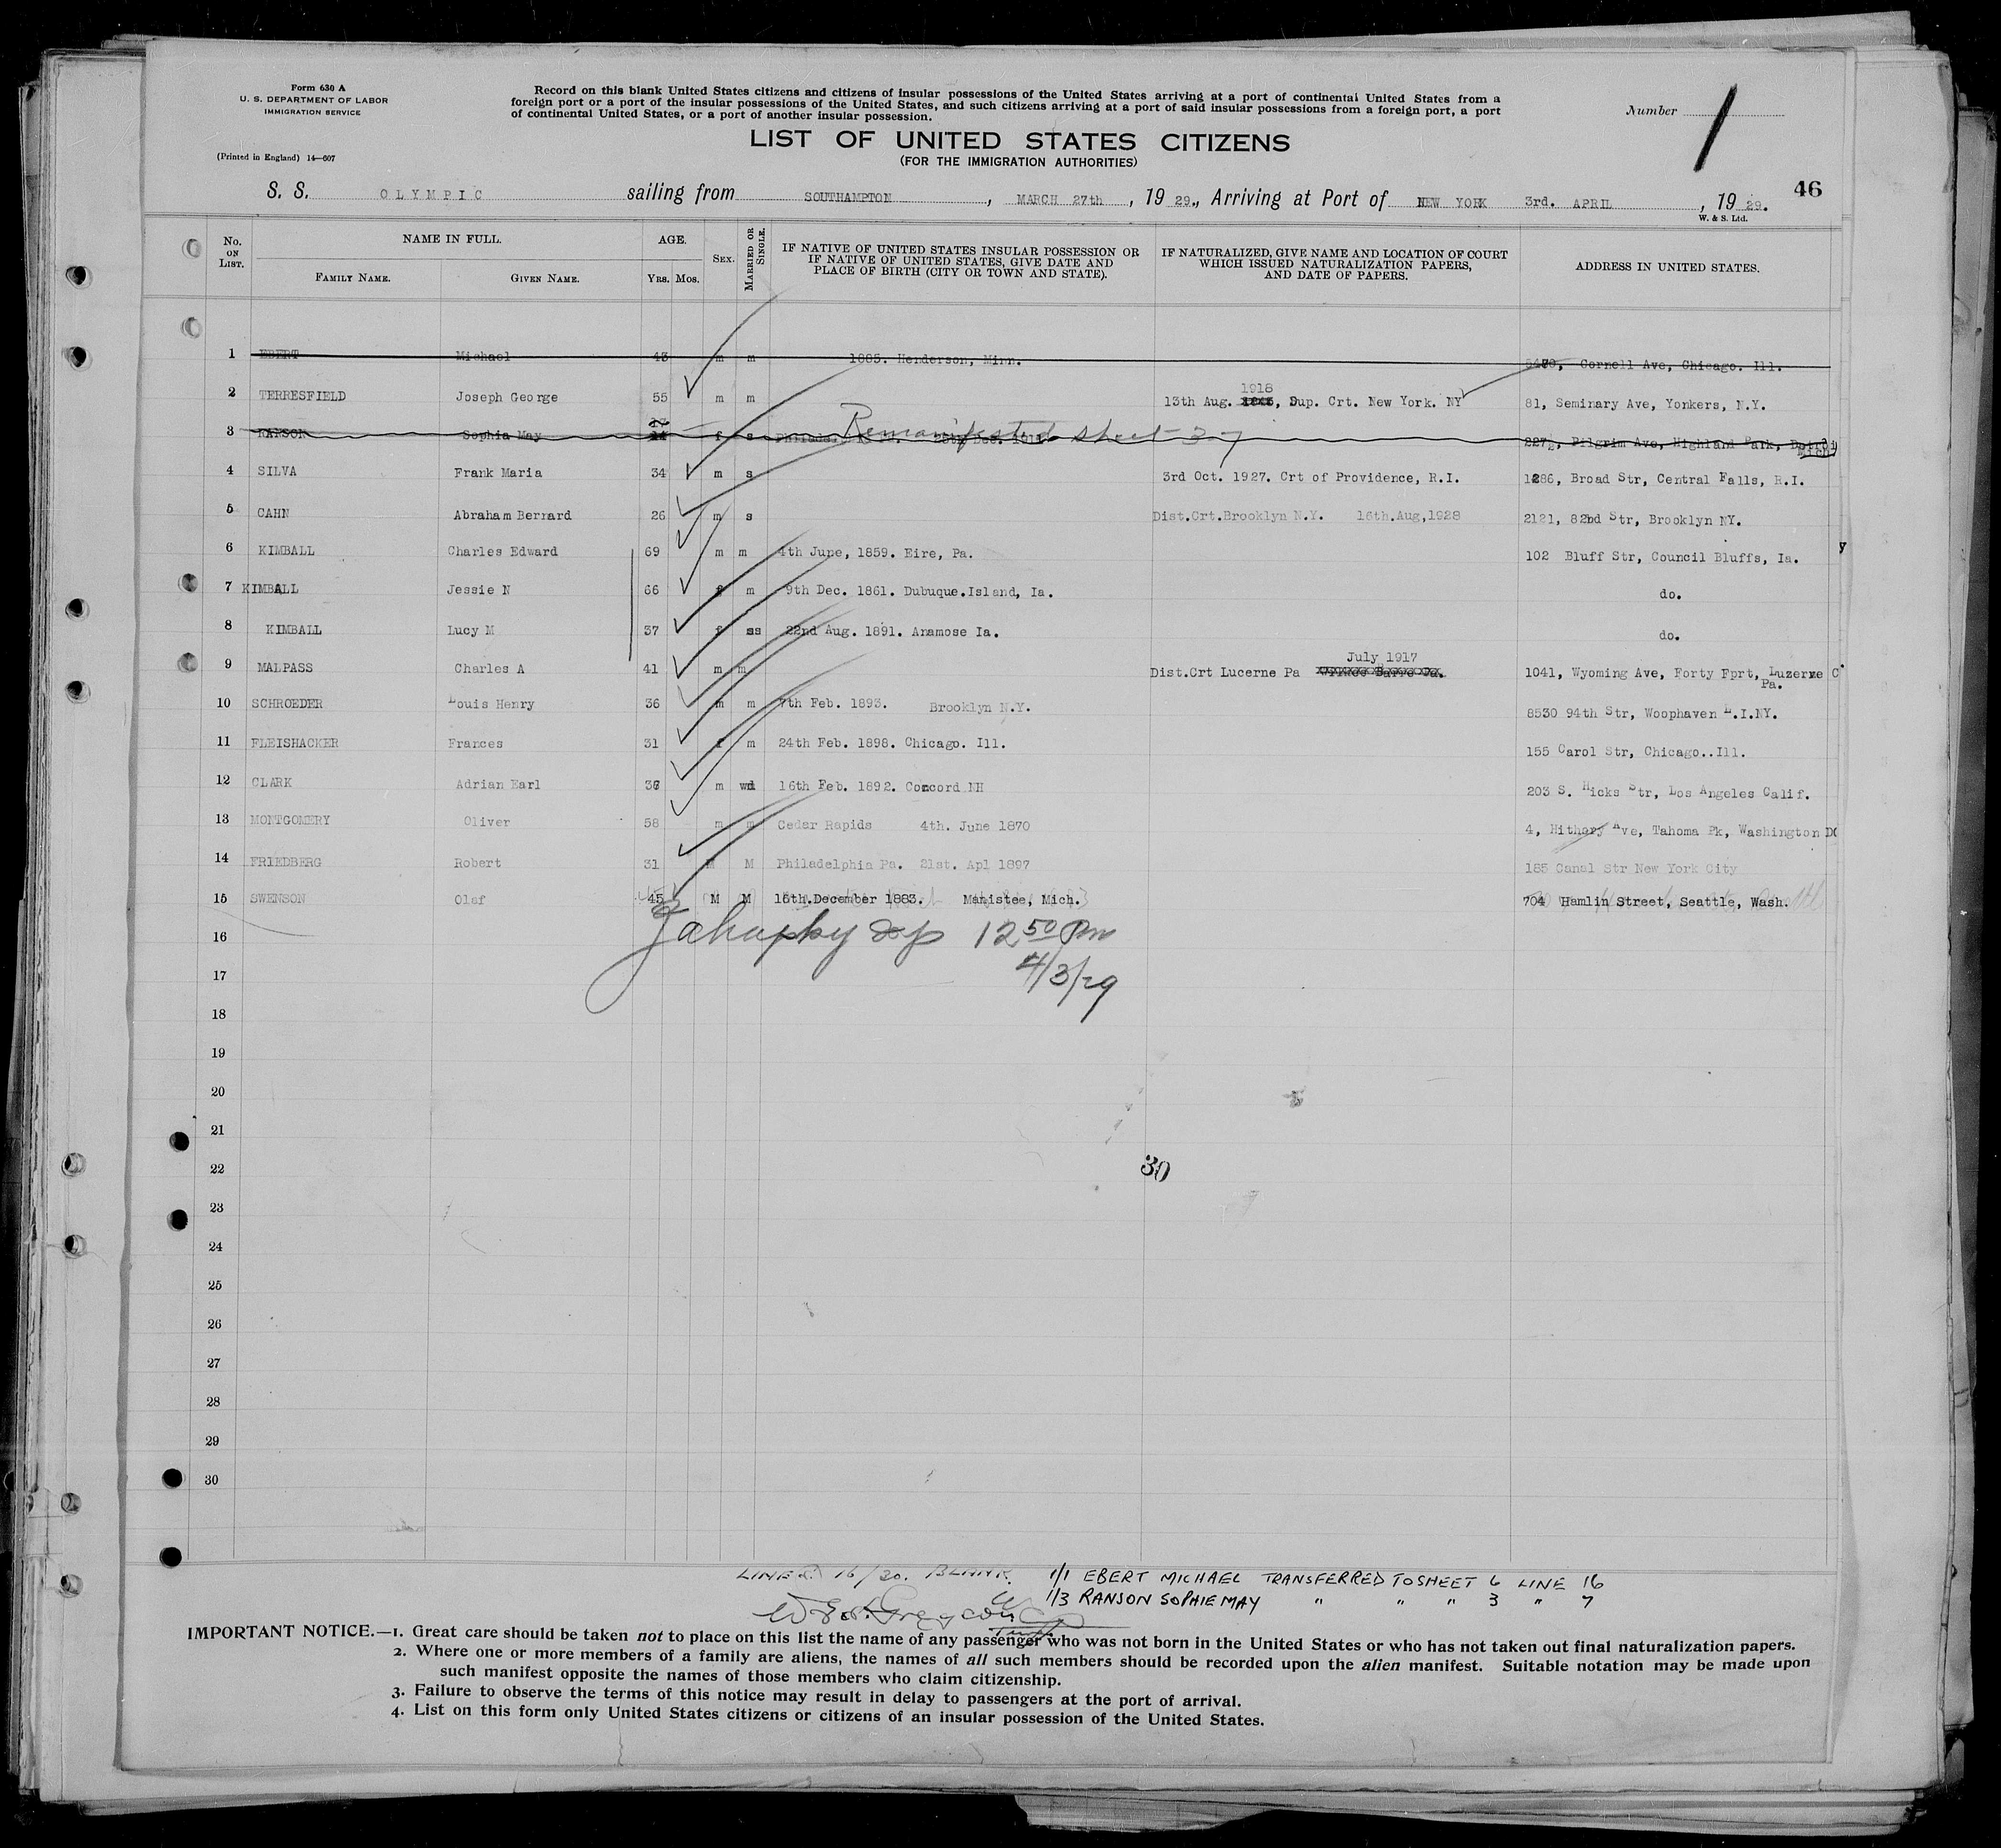 Form 630 A
U. S. DEPARTMENT OF LABOR
IMMIGRATION SERVICE
(Printed in England) 14—607
Record on this blank United States citizens and citizens of insular possessions of the United States arriving at a port of continental United States from a
foreign port or a port of the insular possessions of the United States, and such citizens arriving at a port of said insular possessions from a foreign port, a port
of continental United States, or a port of another insular possession.
Number 1
LIST OF UNITED STATES CITIZENS
(FOR THE IMMIGRATION AUTHORITIES)
46
S. S. OLYMPIC sailing from SOUTHAMPTON, MARCH 27th, 1929., Arriving at Port of NEW YORK 3rd. APRIL, 1929.
W. & S. Ltd.
No. ON LIST. NAME IN FULL. FAMILY NAME. GIVEN NAME. AGE. YRS. MOS. SEX. MARRIED OR SINGLE. IF NATIVE OF UNITED STATES INSULAR POSSESSION OR IF NATIVE OF UNITED STATES, GIVE DATE AND PLACE OF BIRTH (CITY OR TOWN AND STATE). IF NATURALIZED, GIVE NAME AND LOCATION OF COURT WHICH ISSUED NATURALIZATION PAPERS, AND DATE OF PAPERS. ADDRESS IN UNITED STATES.
1 EBERT Michael 43 m m 1885. Henderson, Minn. 5470, Cornell Ave, Chicago. Ill.
2 TERRESFIELD Joseph George 55 m m 13th Aug. 1918, Sup. Crt. New York. NY 81, Seminary Ave, Yonkers, N.Y.
3 RANSON Sophia May f s Remanifested sheet 3-7 Pilgrim Ave, Highland Park, Mich
4 SILVA Frank Maria 34 m s 3rd Oct. 1927. Crt of Providence, R.I. 1286, Broad Str, Central Falls, R.I.
5 CAHN Abraham Bernard 26 m s Dist.Crt.Brooklyn N.Y. 16th.Aug,1928 2121, 82nd Str, Brooklyn NY.
6 KIMBALL Charles Edward 69 m m 4th June, 1859. Eire, Pa. 102 Bluff Str, Council Bluffs, Ia.
7 KIMBALL Jessie N 66 f m 9th Dec. 1861. Dubuque.Island, Ia. do.
8 KIMBALL Lucy M 37 f s 22nd Aug. 1891. Anamose Ia. do.
9 MALPASS Charles A 41 m m Dist.Crt Lucerne Pa July 1917 1041, Wyoming Ave, Forty Fprt, Luzerne C Pa.
10 SCHROEDER Louis Henry 36 m m 7th Feb. 1893. Brooklyn N.Y. 8530 94th Str, Woophaven L.I.NY.
11 FLEISHACKER Frances 31 f m 24th Feb. 1898. Chicago. Ill. 155 Carol Str, Chicago..Ill.
12 CLARK Adrian Earl 36 m wd 16th Feb. 1892. Concord NH 203 S. Hicks Str, Los Angeles Calif.
13 MONTGOMERY Oliver 58 m m Cedar Rapids 4th. June 1870 4, Hithory Ave, Tahoma Pk, Washington DC
14 FRIEDBERG Robert 31 M M Philadelphia Pa. 21st. Apl 1897 185 Canal Str New York City
15 SWENSON Olaf 45 M M 15th.December 1883. Manistee, Mich. 704 Hamlin Street, Seattle, Wash.
16 12 50 Pm
17 4/3/29
18
19
20
21
22 30
23
24
25
26
27
28
29
30
LINES 16/30. BLANK. 1/1 EBERT MICHAEL TRANSFERRED TO SHEET 6 LINE 16
1/3 RANSON SOPHIE MAY " " " 3 " 7
IMPORTANT NOTICE.—1. Great care should be taken not to place on this list the name of any passenger who was not born in the United States or who has not taken out final naturalization papers.
2. Where one or more members of a family are aliens, the names of all such members should be recorded upon the alien manifest. Suitable notation may be made upon
such manifest opposite the names of those members who claim citizenship.
3. Failure to observe the terms of this notice may result in delay to passengers at the port of arrival.
4. List on this form only United States citizens or citizens of an insular possession of the United States.